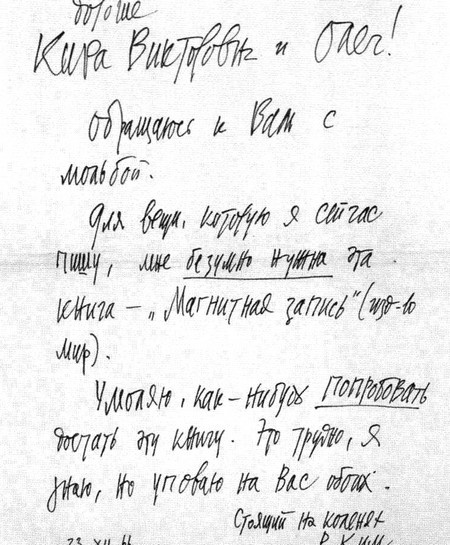 дорогие
Кира Викторовна и Олег!
Обращаюсь к Вам с
мольбой.
Для вещи, которую я сейчас
пишу, мне безумно нужна эта
книга — „Магнитная запись" (изд-во
Мир).
Умоляю, как-нибудь попробовать
достать эту книгу. Это трудно, я
знаю, но уповаю на Вас обоих.
Стоящий на коленях
23 XII 66